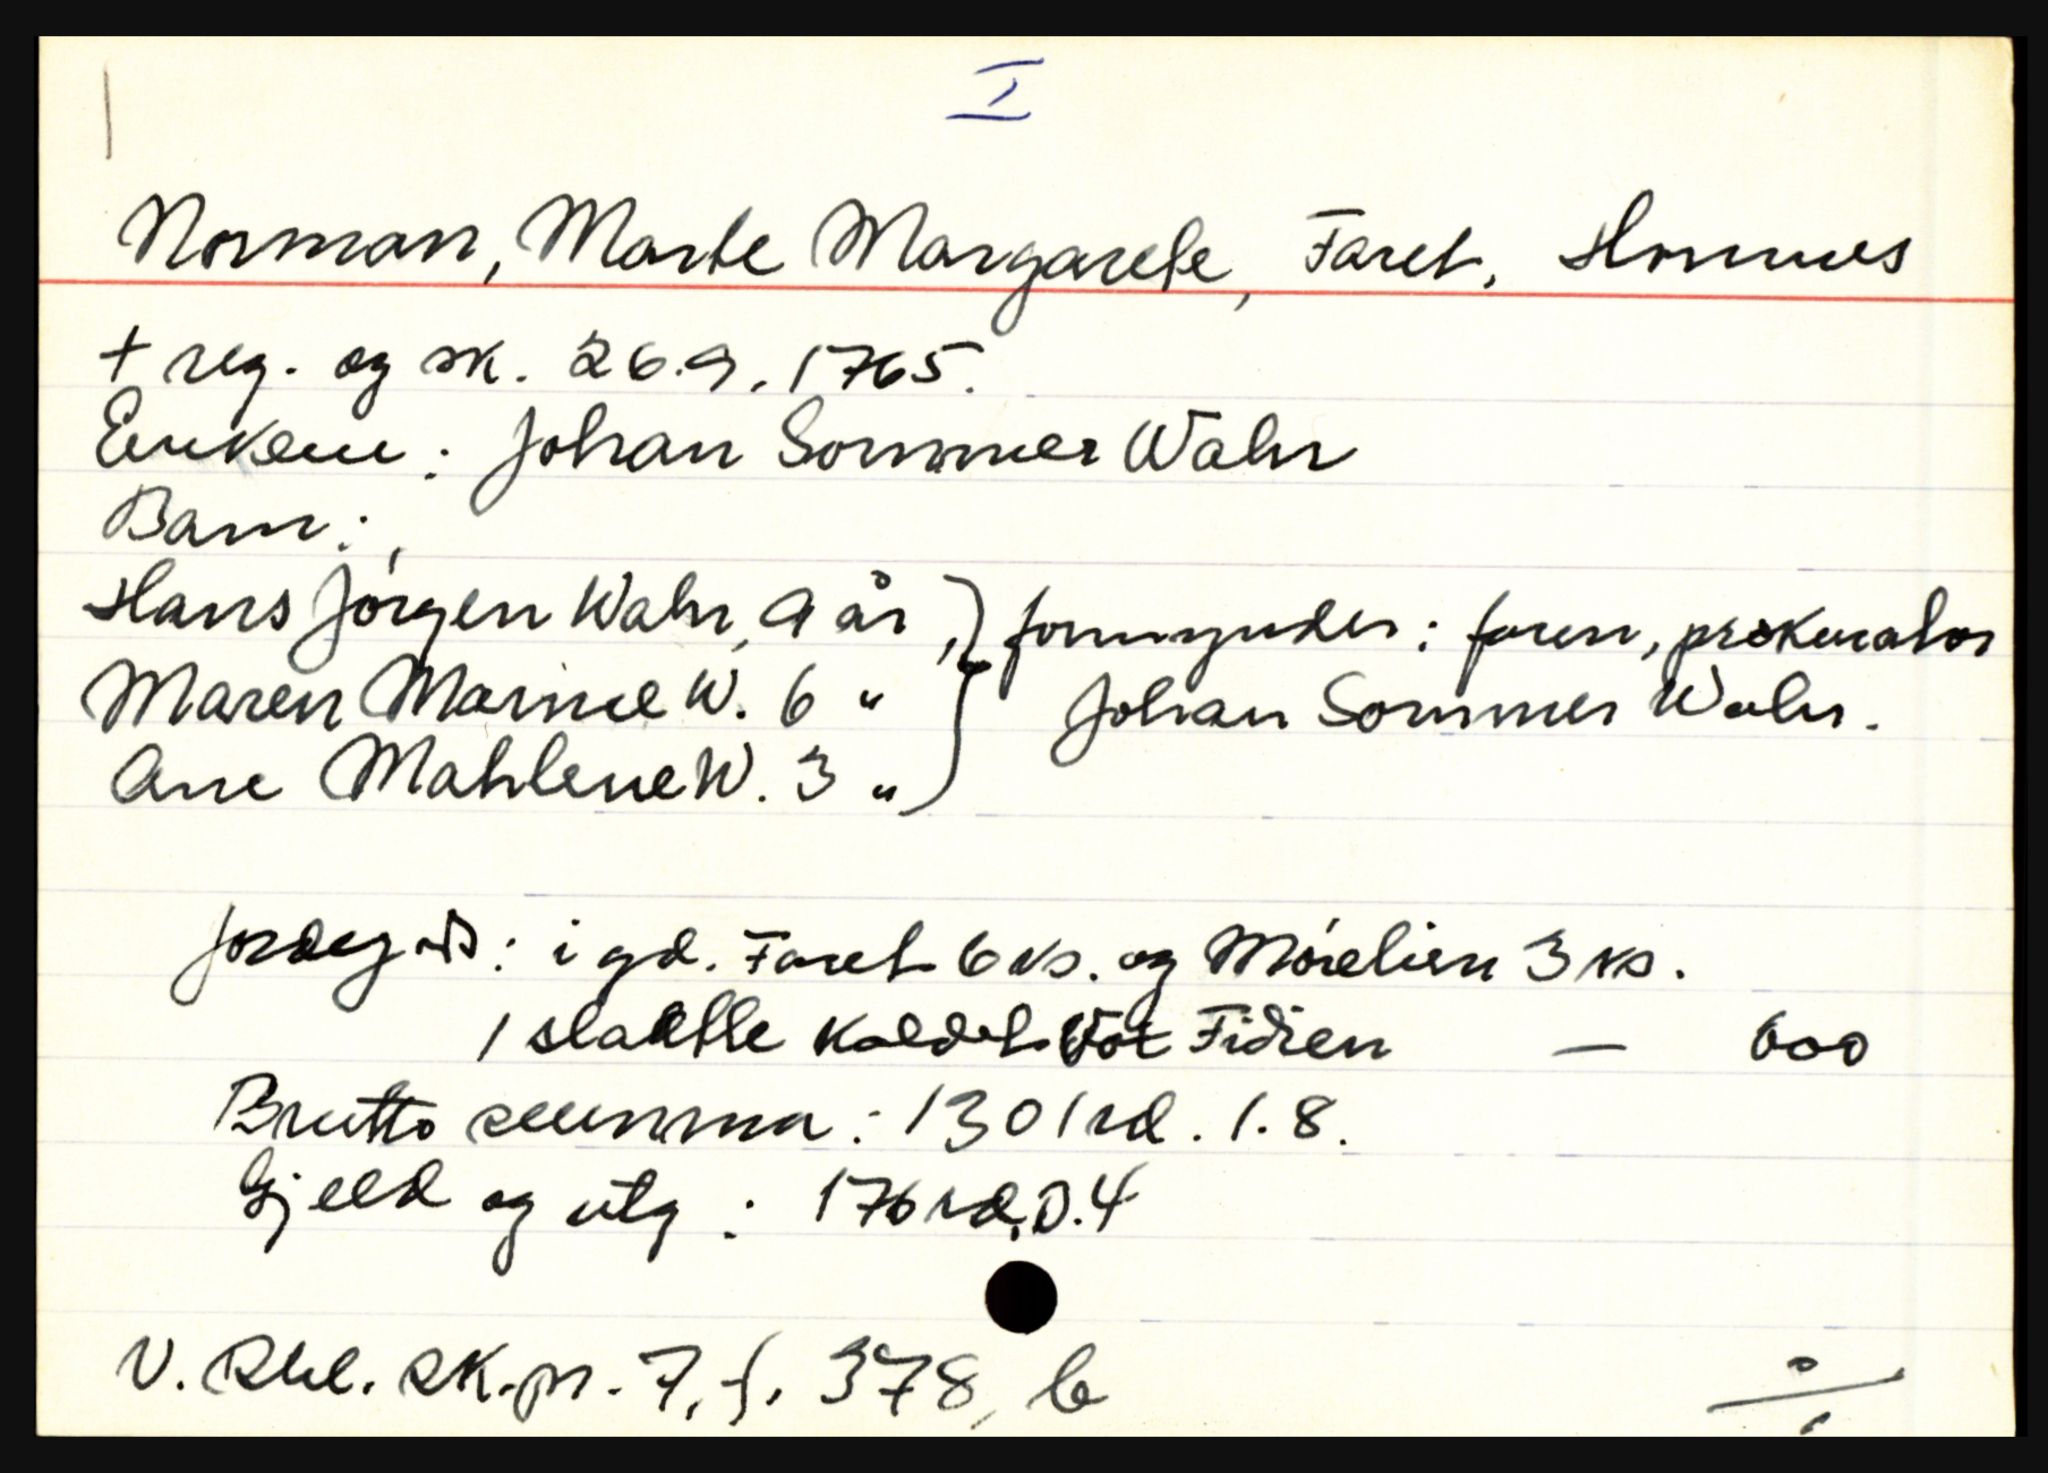 I
Norman, Marte Margarete, Faret, Homnes
+ reg. og sk. 26.9.1765.
Enkem: Johan Sommer Wahr
Barn:
Hans Jörgen Wahr, 9 år, } formynder: faren, prokurator
Maren Marine W. 6 " } Johan Sommer Wahr.
Ane Mahlene W. 3 "
Jordegods: i gd. Faret 6 ks. og Mörelien 3 ks.
1 slaatte kaldet Vot Fidien — 600
Brutto summa: 1301 rd. 1.8.
Gjeld og utg: 176 rd. 0.4
V. Rbl. sk.pr. 7, f. 378, b